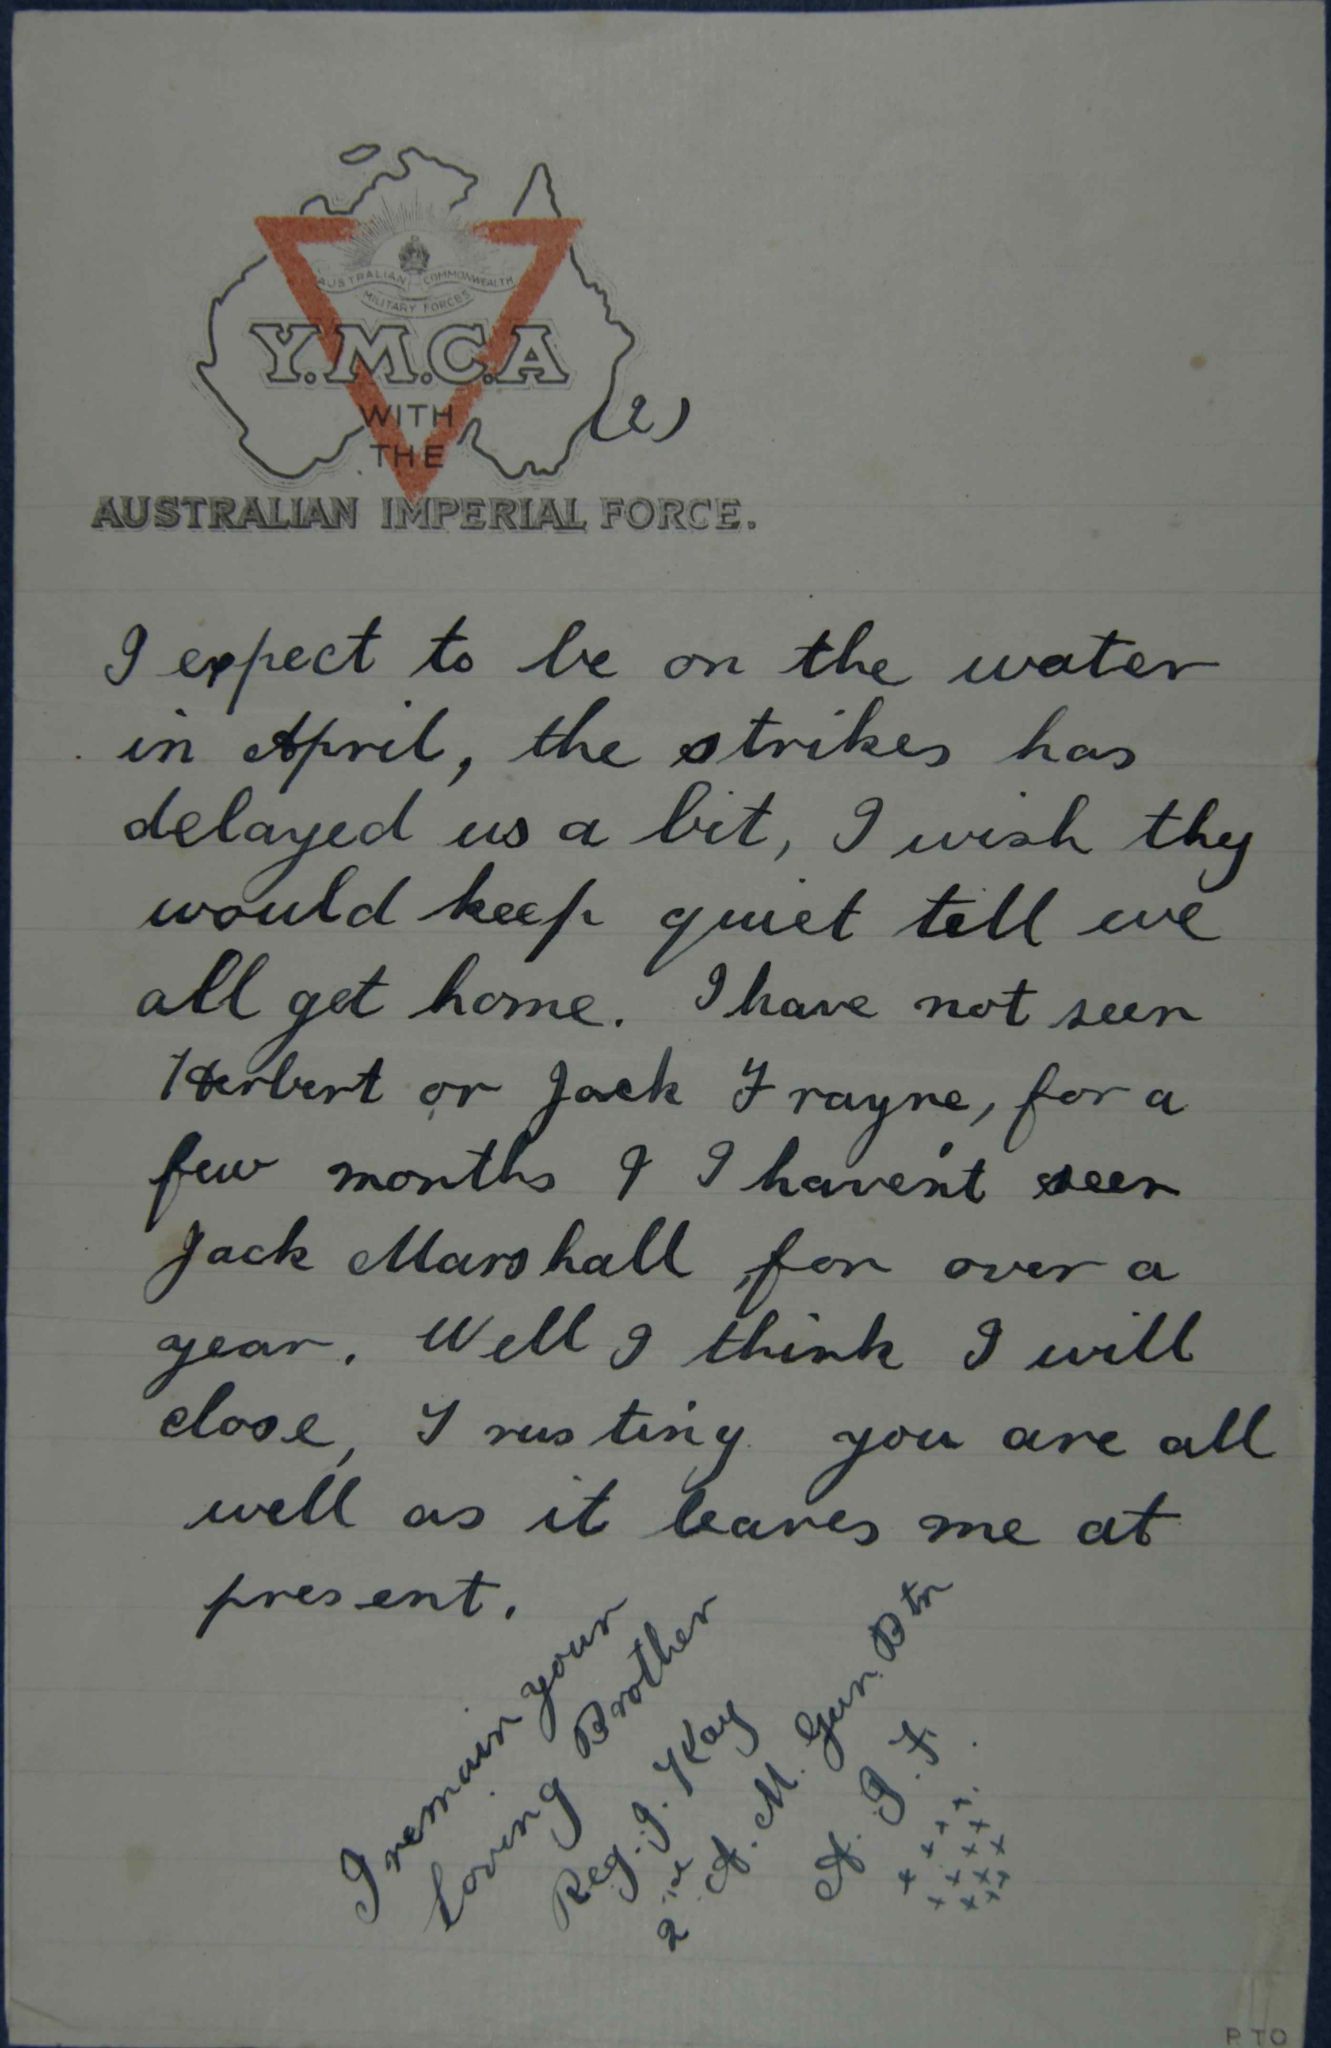 AUSTRALIAN COMMONWEALTH
MILITARY FORCES
Y.M.C.A
WITH
THE
(2)
AUSTRALIAN IMPERIAL FORCE.
I expect to be on the water
in April, the strikes has
delayed us a bit, I wish they
would keep quiet till we
all get home. I have not seen
Herbert or Jack Frayne, for a
few months & I haven't seen
Jack Marshall, for over a
year. Well I think I will
close, Trusting you are all
well as it leaves me at
present.
I remain your
loving Brother
Reg. J. Kay
A. M. Gun. Btn
A. I. F.
x x x x x x x x x x x x x
P.T.O